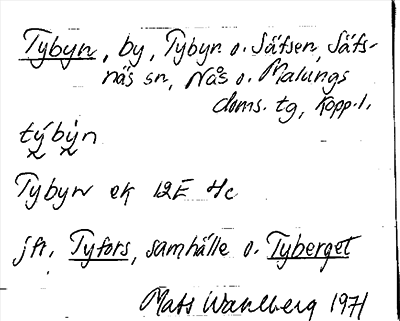 Tybyn, by, Tybyn o. Säfsen, Säfs-
näs sn, Nås o. Malungs
doms. tg, Kopp. l.
týbỳn
Tybyn ek 12E 4c
jfr. Tyfors, samhälle o. Tyberget
Mats Wahlberg 1971